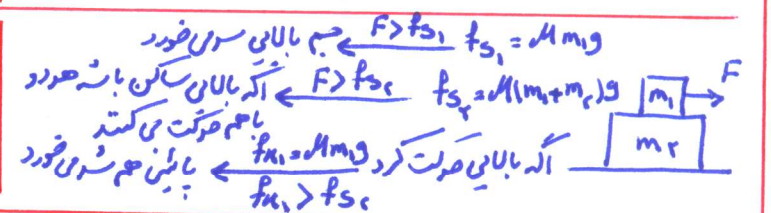 f_{s_1} = μ m_1 g  F > f_{s_1} ← جسم بالایی سر می خورد
f_{s_۲} = μ(m_1 + m_۲)g  F > f_{s_۲} ← اگه بالایی ساکن باشه هر دو
با هم حرکت می کنند
اگه بالایی حرکت کرد  f_{k_1} = μ m_1 g  ← پائینی هم سر می خورد
f_{k_1} > f_{s_۲}
m_1 F
m_۲